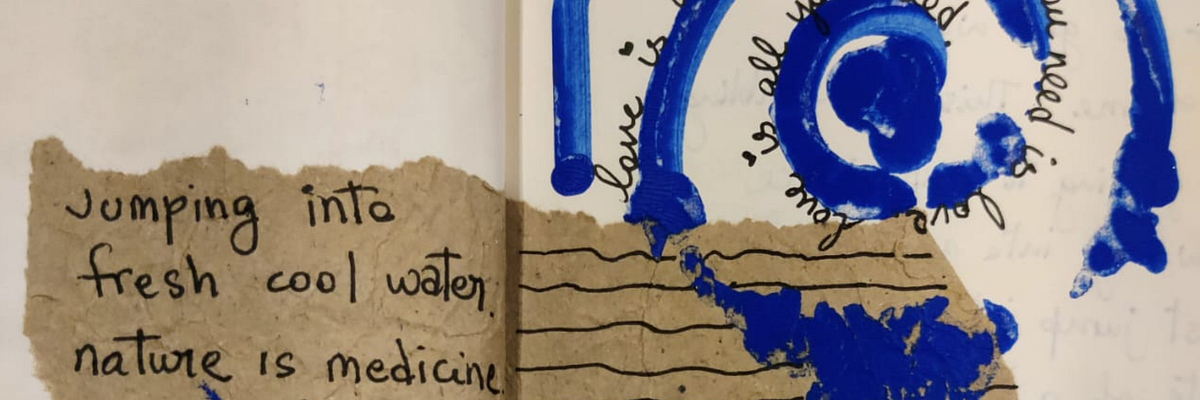 Jumping into
fresh cool water.
nature is medicine
love is
love is all
need
you need is love